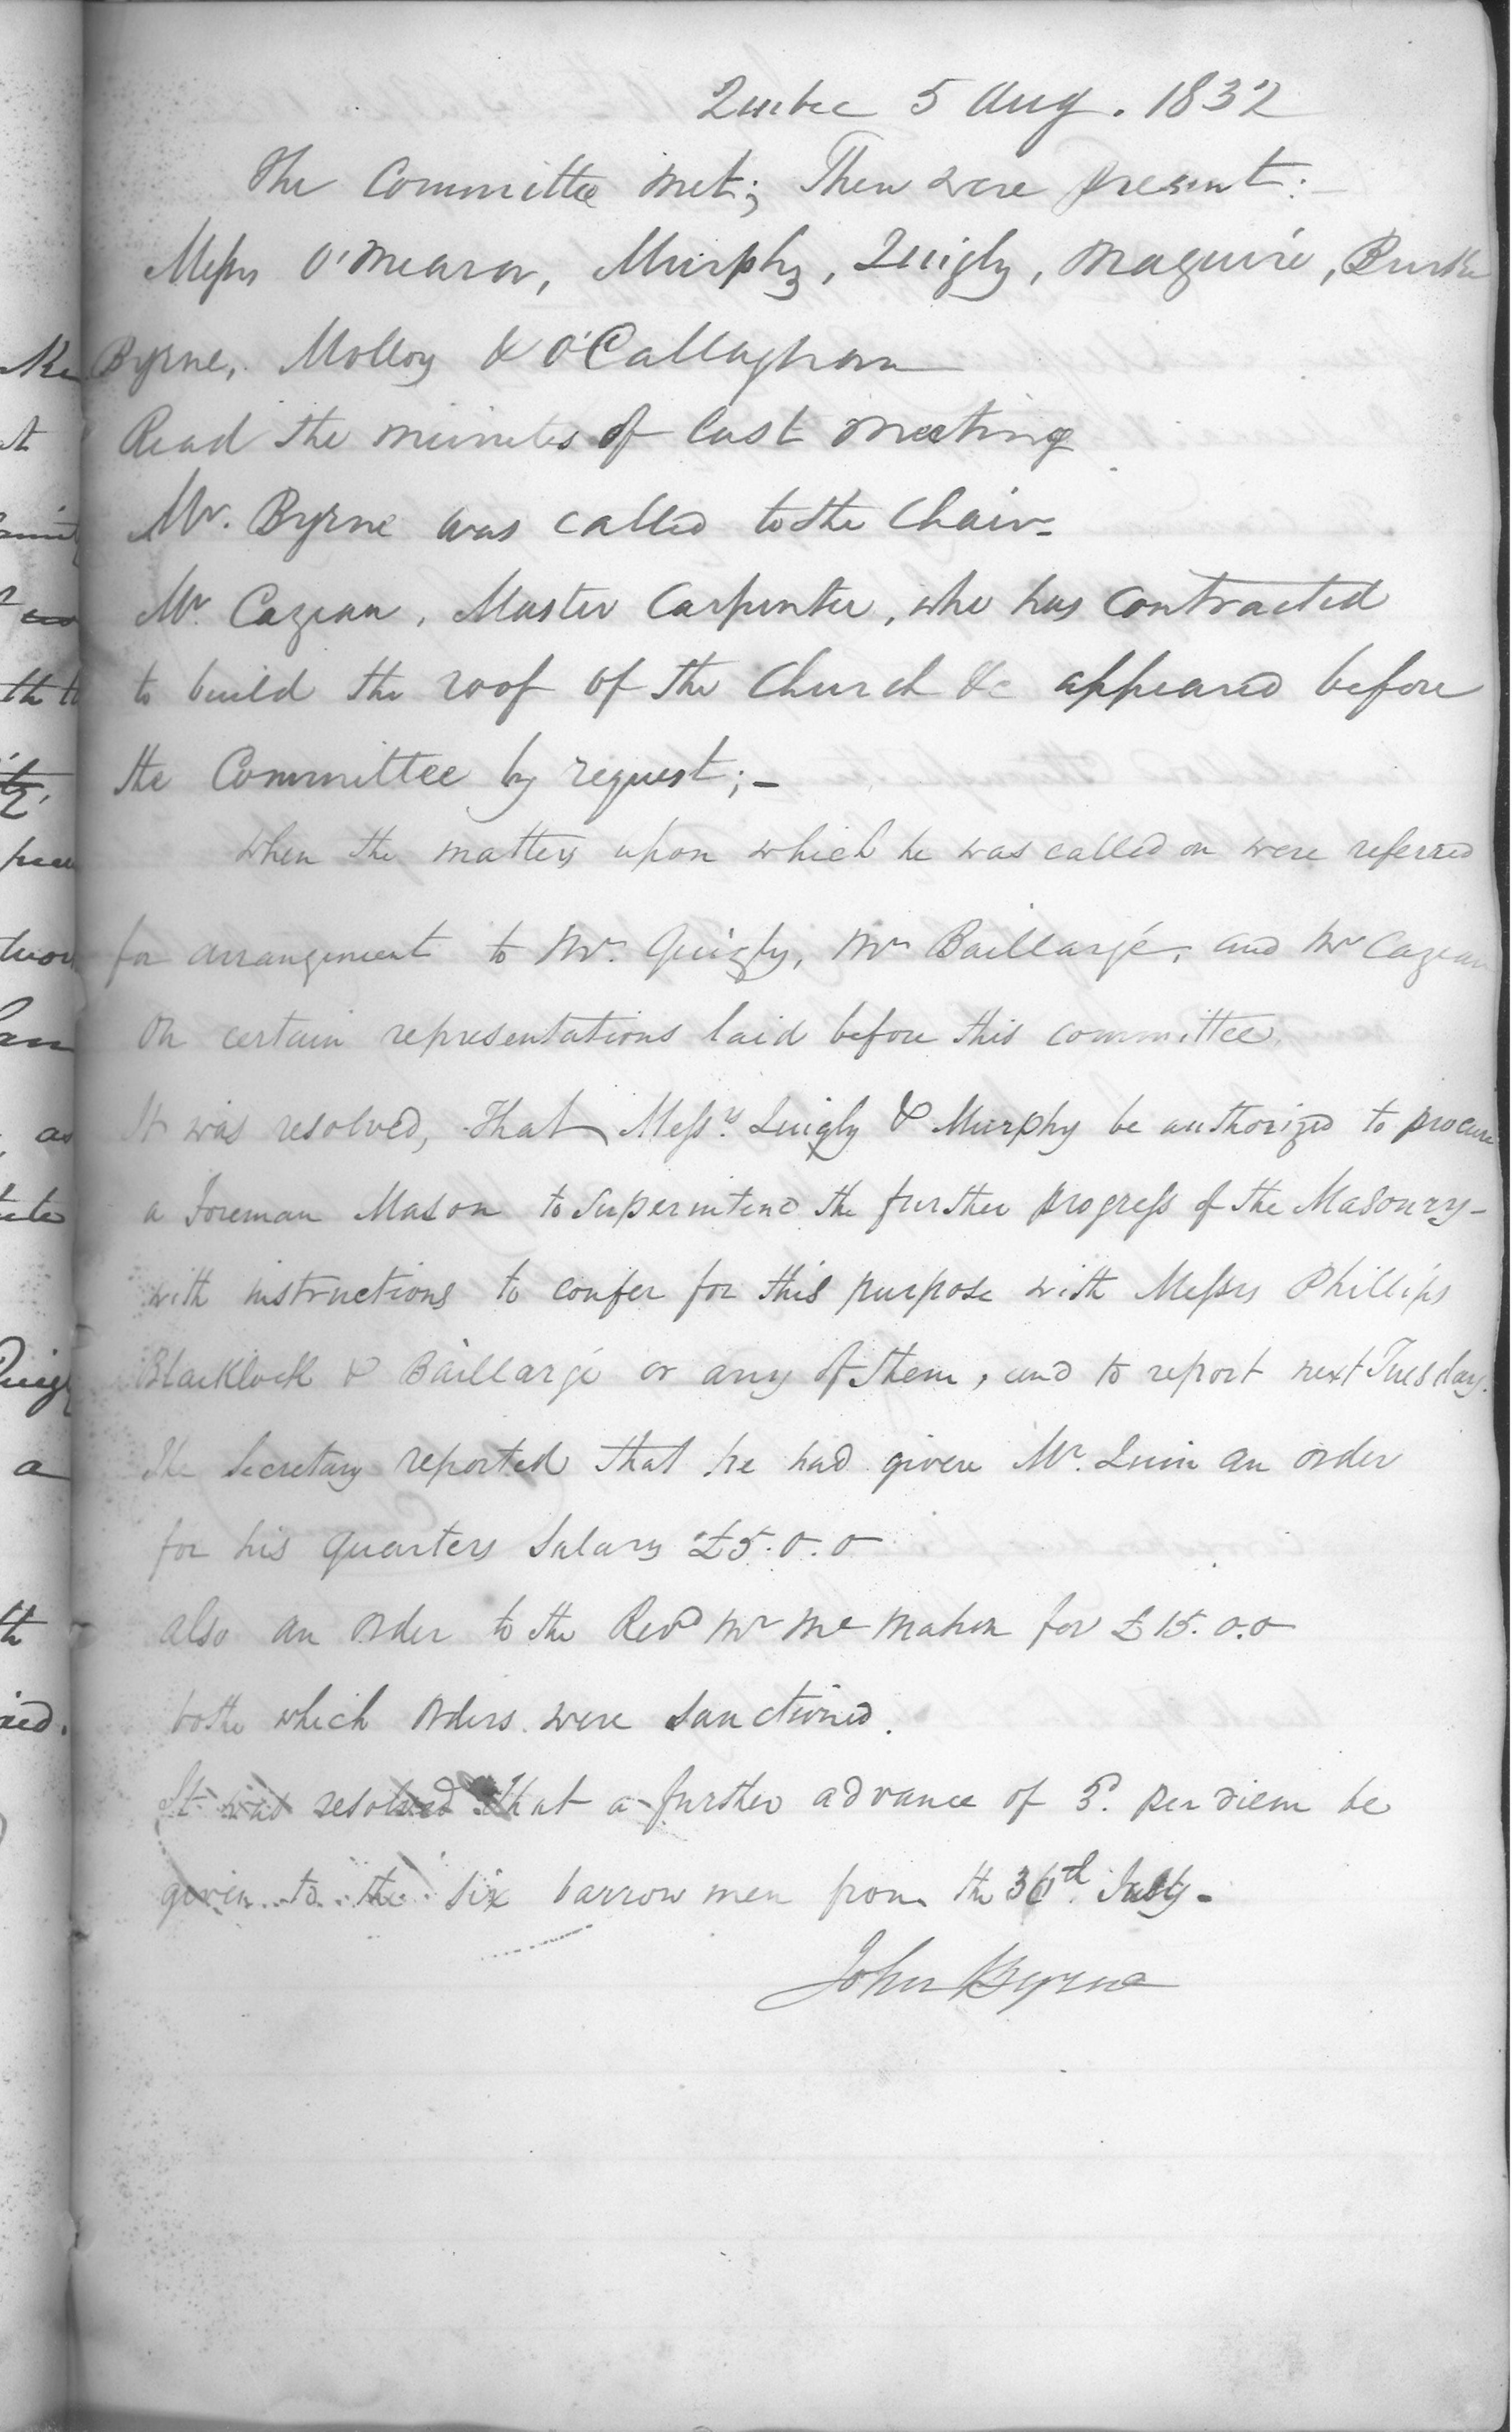 Quebec 5 Aug. 1832
The Committee met; There were present:-
Messrs O'Meara, Murphy, Quigly, Maguire, Burke
Byrne, Molloy & O'Callaghan
Read the minutes of last meeting
Mr. Byrne was called to the Chair-
Mr. Cazeau, Master Carpenter, who has contracted
to build the roof of the Church &c appeared before
the Committee by request;-
when the matters upon which he was called on were referred
for arrangement to Mr. Quigly, Mr Baillargé, and Mr Cazeau
On certain representations laid before this committee.
It was resolved, that Messrs Quigly & Murphy be authorized to procure
a Foreman Mason to superintend the further progress of the Masonry-
with instructions to confer for this purpose with Messrs Phillips
Blacklock & Baillargé or any of them, and to report next Tuesday.
The Secretary reported that he had given Mr. Quin an order
for his quarters Salary £5.0.0
also an order to the Revd Mr McMahon for £15.0.0
both which orders were sanctioned.
It was resolved that a further advance of per diem be
given to the six barrow men from the July-
John Byrne
at
th
as
a
th